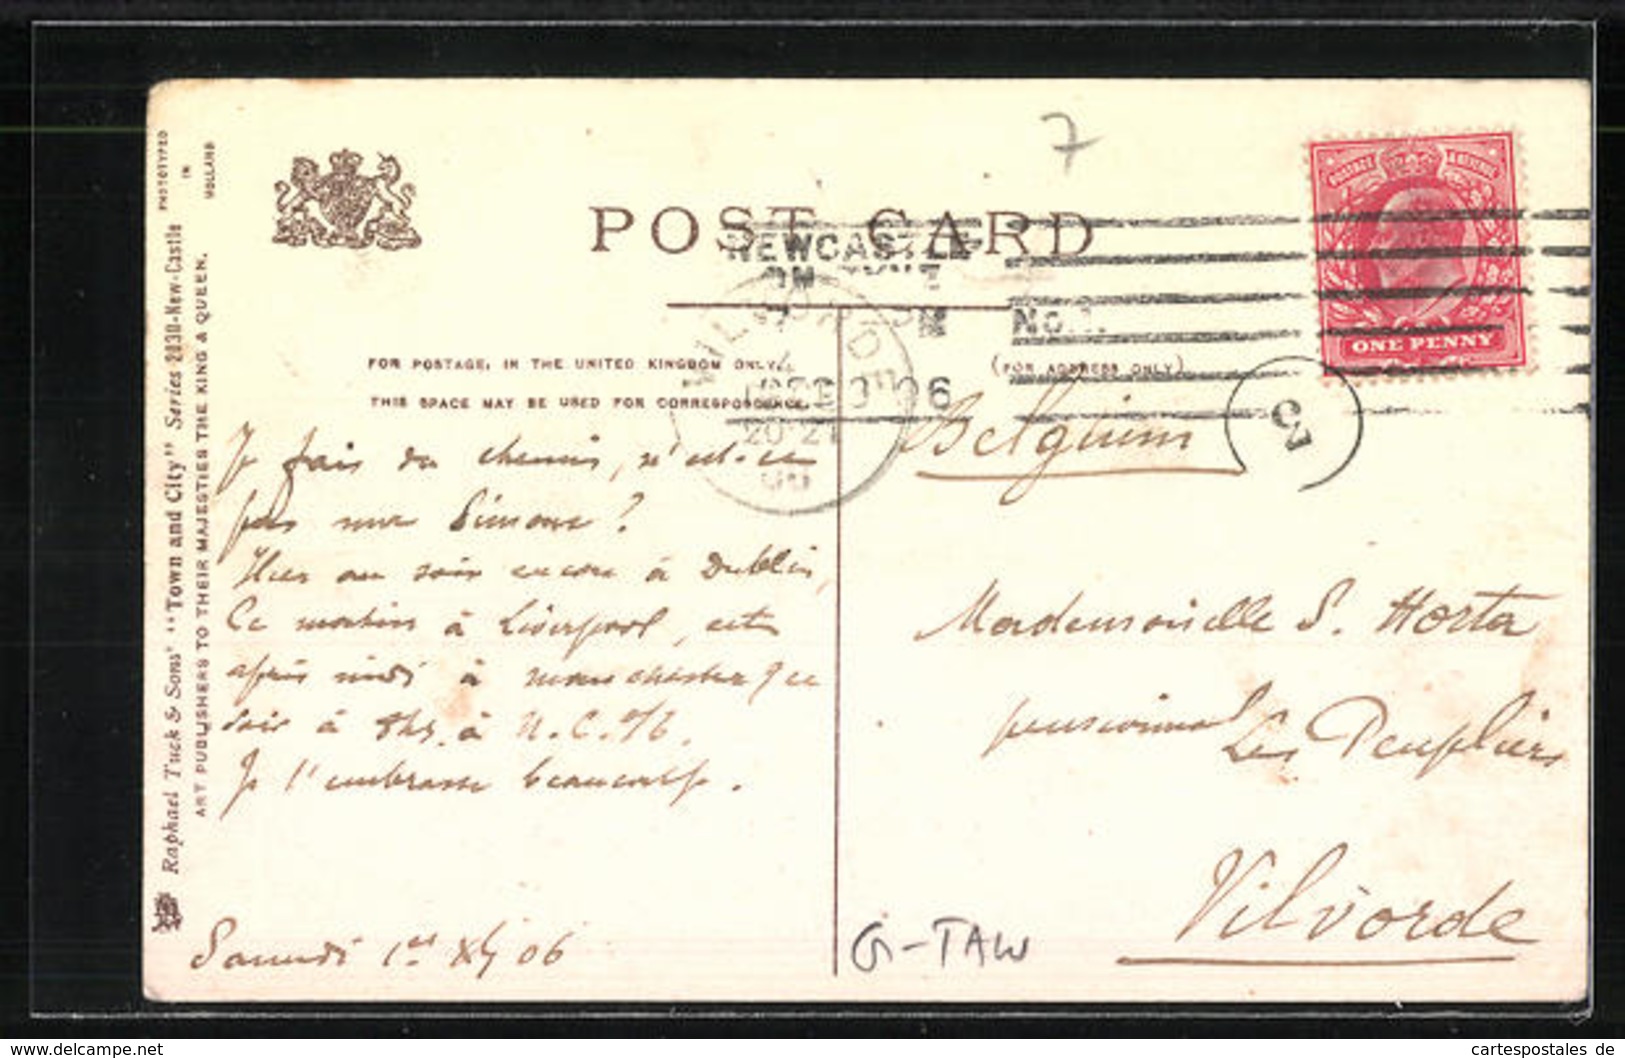 7
POST CARD
NEWCASTLE
ON TYNE
No.
POSTAGE & REVENUE
ONE PENNY
FOR POSTAGE, IN THE UNITED KINGDOM ONLY,
THIS SPACE MAY BE USED FOR CORRESPONDENCE.
(FOR ADDRESS ONLY)
VILVORDE
06
20-21
5
PHOTOTYPED
IN
HOLLAND
Raphael Tuck & Sons' "Town and City" Series 2030-New-Castle
ART PUBLISHERS TO THEIR MAJESTIES THE KING & QUEEN.
Je fais du chemin, n'est-ce
pas ma Simone?
Hier au soir encore à Dublin,
Ce matin à Liverpool, cet
après midi à manchester & ce
soir à 8hs. à N.C. o/t.
Je t'embrasse beaucoup.
Samedi 1er 06
Belgium
Mademoiselle S. Horta
pensionnat Les Peupliers
Vilvorde
G-TAW
www.delcampe.net
cartespostales de